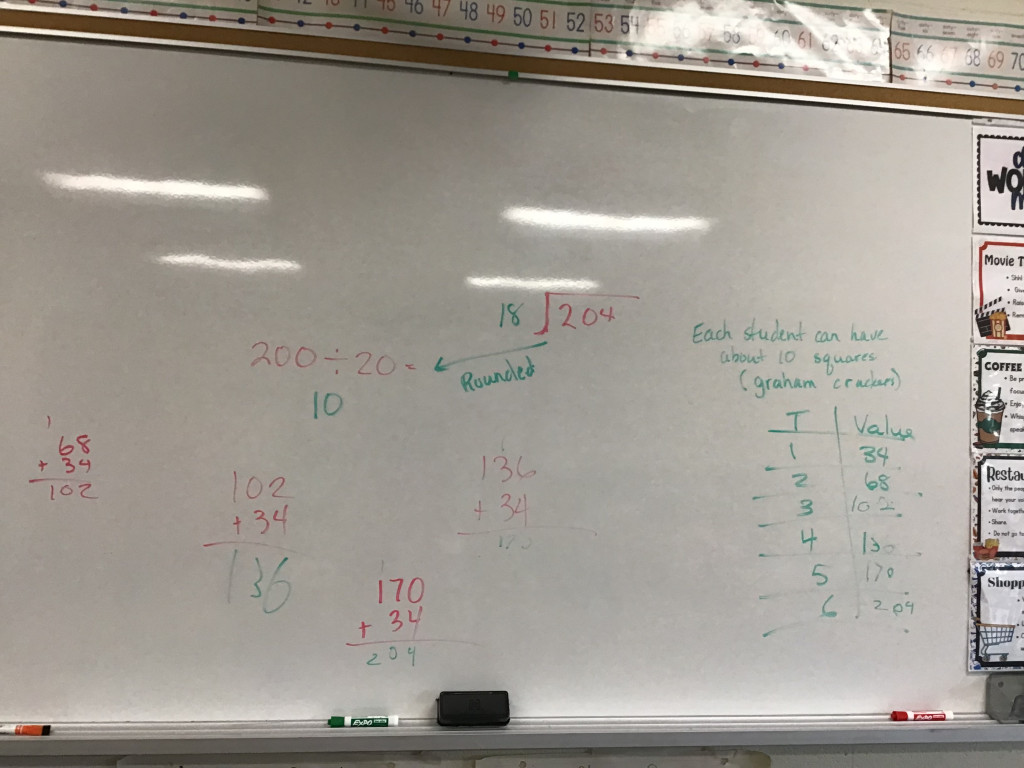 45 46 47 48 49 50 51 52 53 54
58
60 61
65 66 67 68 69 70
18 204
200 ÷ 20 =
Rounded
10
Each student can have
about 10 squares
(graham crackers)
T Value
1 34
2 68
3 102
4 130
5 170
6 204
1
68
+ 34
102
102
+ 34
136
1
136
+ 34
1
170
+ 34
204
Movie
COFFEE
Work together
Share
Do not go
EXPO
EXPO